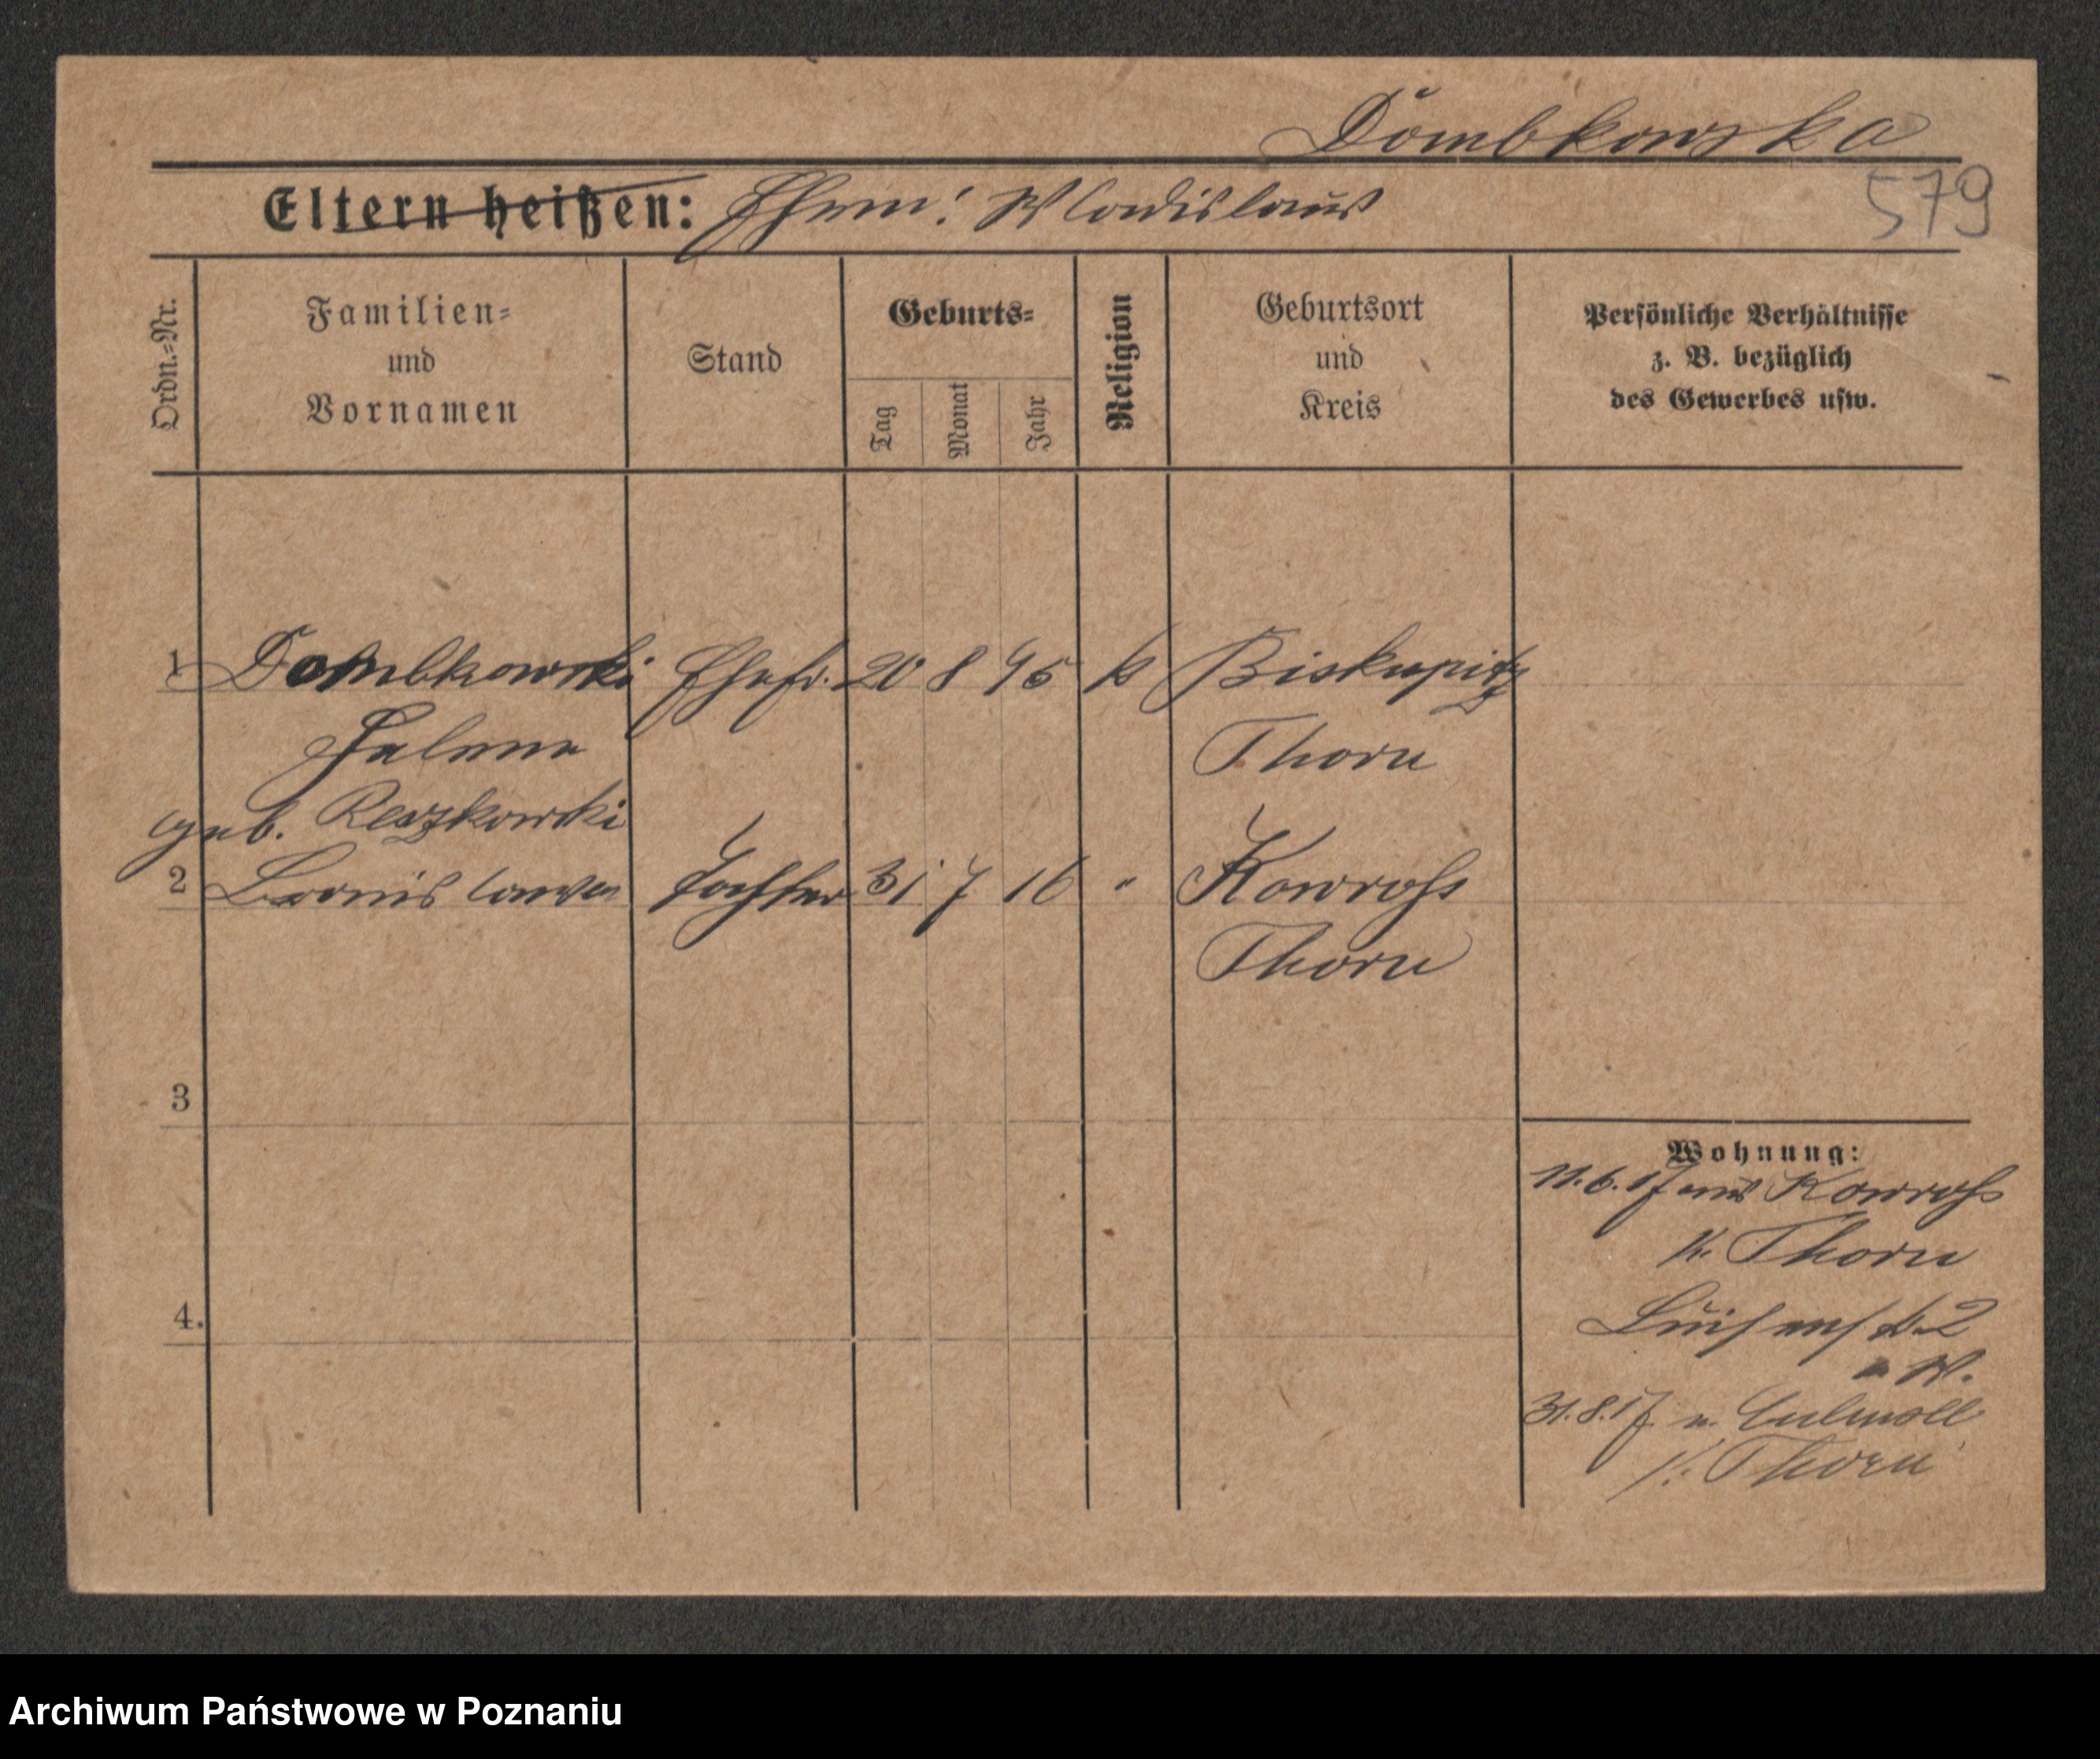 Dombkowska
579
Eltern heißen: Ehem: Wladislaus
Ordn.=Nr.
Familien=
und
Vornamen
Stand
Geburts=
Tag
Monat
Jahr
Religion
Geburtsort
und
Kreis
Persönliche Verhältnisse
z. B. bezüglich
des Gewerbes usw.
1 Dombkowski Ehefr. 20 8 95 k Biskupitz
Helene Thorn
geb. Reszkowski
2 Bronislawa Tochter 31 7 16 " Kowroß
Thorn
3
4.
Wohnung:
11.6.17 aus Kowroß
K. Thorn
2
W.
31.8.17 n. Culm
K. Thorn
Archiwum Państwowe w Poznaniu